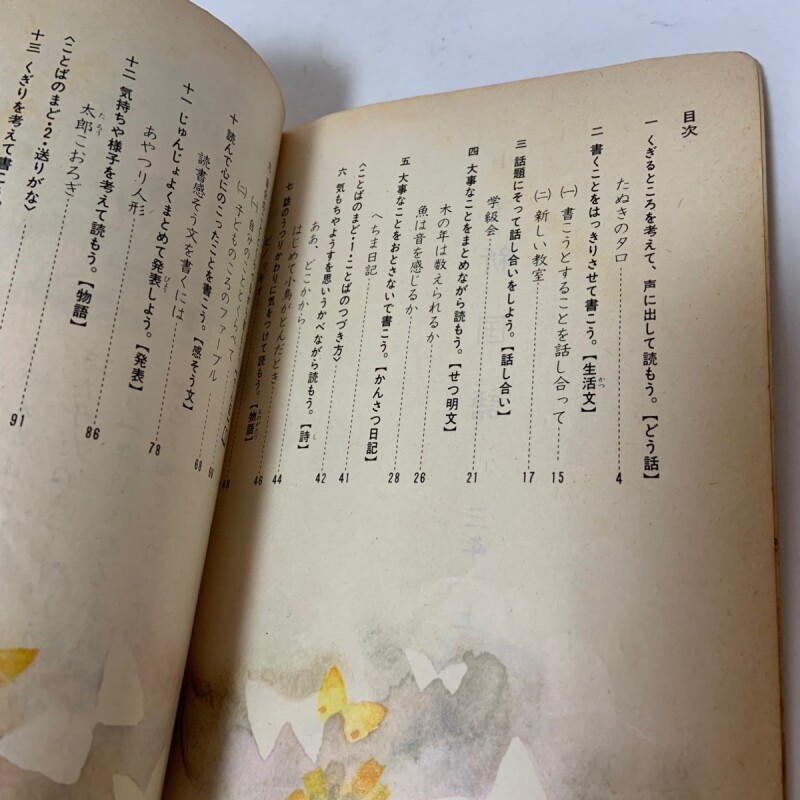 目次
一 くぎるところを考えて、声に出して読もう。【どう話】
たぬきのタロ 4
二 書くことをはっきりさせて書こう。【生活文】
(一) 書こうとすることを話し合って 15
(二) 新しい教室 17
三 話題にそって話し合いをしよう。【話し合い】
学級会 21
四 大事なことをまとめながら読もう。【せつ明文】
木の年は数えられるか 26
魚は音を感じるか 28
五 大事なことをおとさないで書こう。【かんさつ日記】
へちま日記 41
〈ことばのまど・1・ことばのつづき方〉 42
六 気もちやようすを思いうかべながら読もう。【詩】
ああ、どこかから 44
はじめて小鳥がとんだとき 46
七 話のうつりかわりに気をつけて読もう。【物語】
48
(二) 子どものころのファーブル
十 読んで心にのこったことを書こう。【感そう文】
読書感そう文を書くには 69
十一 じゅんじょよくまとめて発表しよう。【発表】
あやつり人形 78
十二 気持ちや様子を考えて読もう。【物語】
太郎こおろぎ 86
〈ことばのまど・2・送りがな〉 91
十三 くぎりを考えて書こう